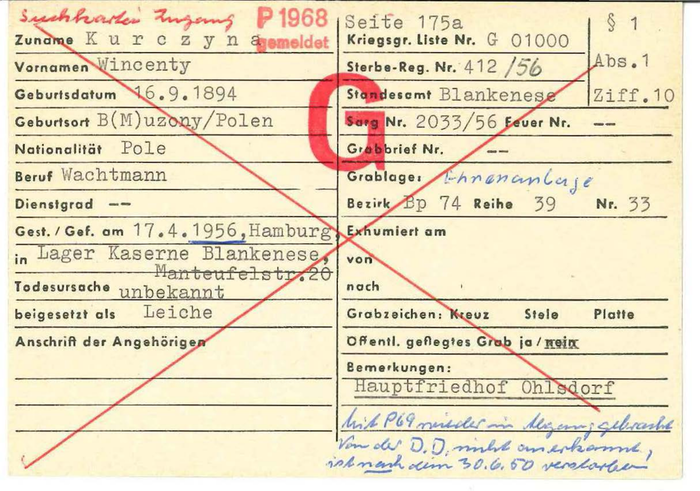 Suchkartei Zugang
P 1968
gemeldet
Zuname Kurczyna
Vornamen Wincenty
Geburtsdatum 16.9.1894
Geburtsort B(M)uzony/Polen
Nationalität Pole
Beruf Wachtmann
Dienstgrad --
Gest./Gef. am 17.4.1956, Hamburg,
in Lager Kaserne Blankenese,
Manteufelstr.20
Todesursache unbekannt
beigesetzt als Leiche
Anschrift der Angehörigen
G
Seite 175a
Kriegsgr. Liste Nr. G 01000
Sterbe-Reg. Nr. 412/56
Standesamt Blankenese
§ 1
Abs.1
Ziff.10
Sarg Nr. 2033/56 Feuer Nr. --
Grabbrief Nr. --
Grablage: Ehrenanlage
Bezirk Bp 74 Reihe 39 Nr. 33
Exhumiert am
von
nach
Grabzeichen: Kreuz Stele Platte
Öffentl. gepflegtes Grab ja/nein
Bemerkungen:
Hauptfriedhof Ohlsdorf
Mit P69 wieder in Abgang gebracht
Von der D.D. nicht anerkannt,
ist nach dem 30.6.50 verstorben